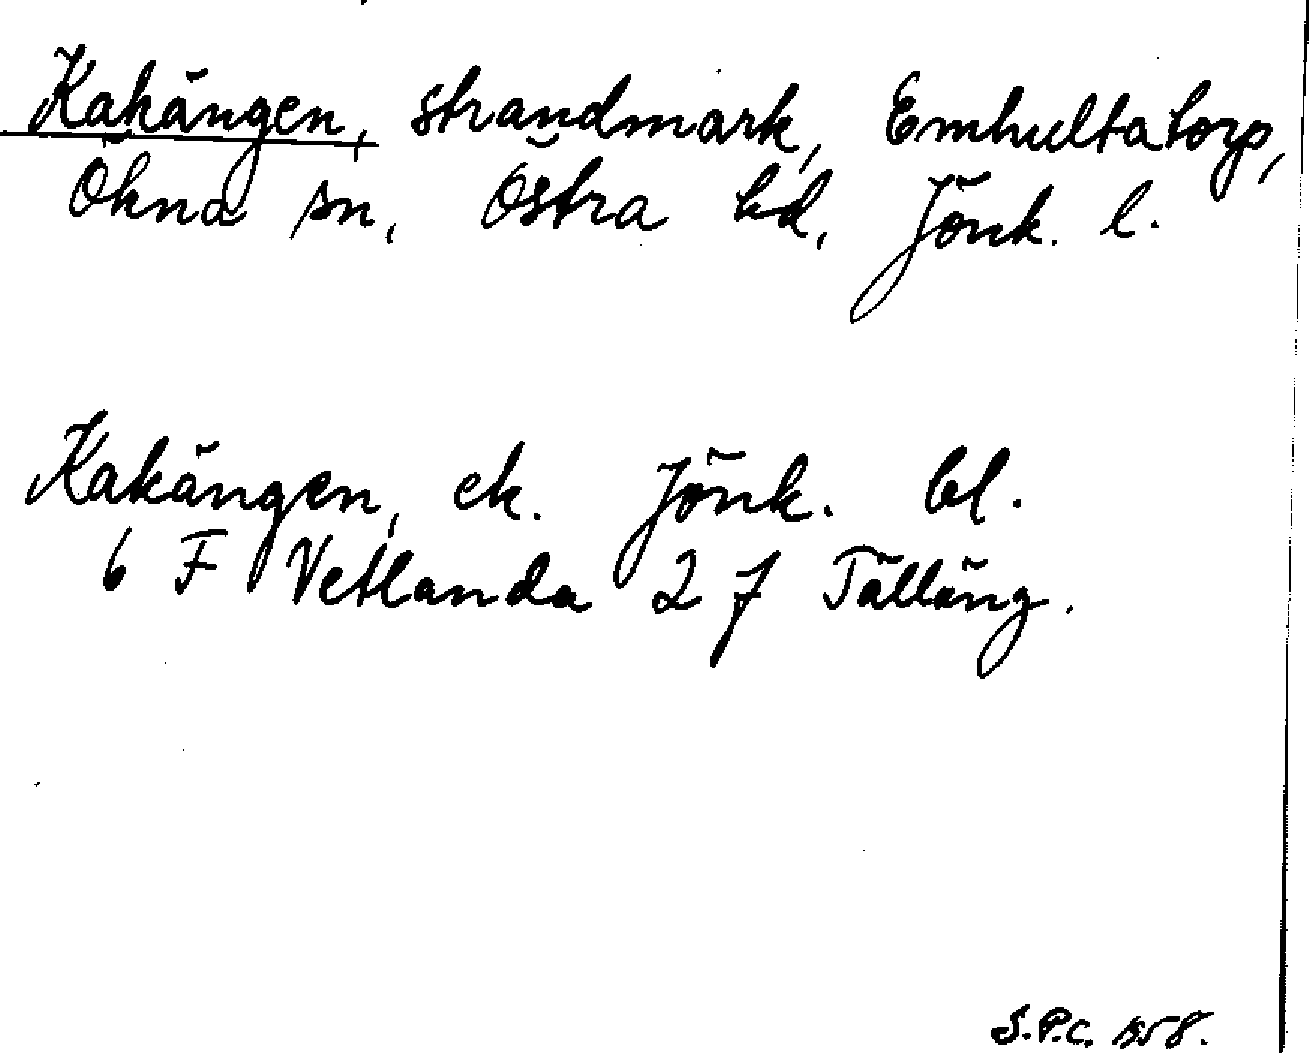 Kakängen, strandmark, Emhultatorp,
Ökna sn, Östra hd, Jönk. l.
Kakängen, ek. Jönk. bl.
6 F Vetlanda 2 f Tälläng.
S.P.C. 1958.